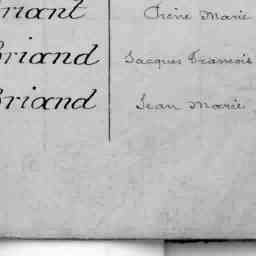 riant Chène Marie
Briand Jacques François
Briand Jean Marie